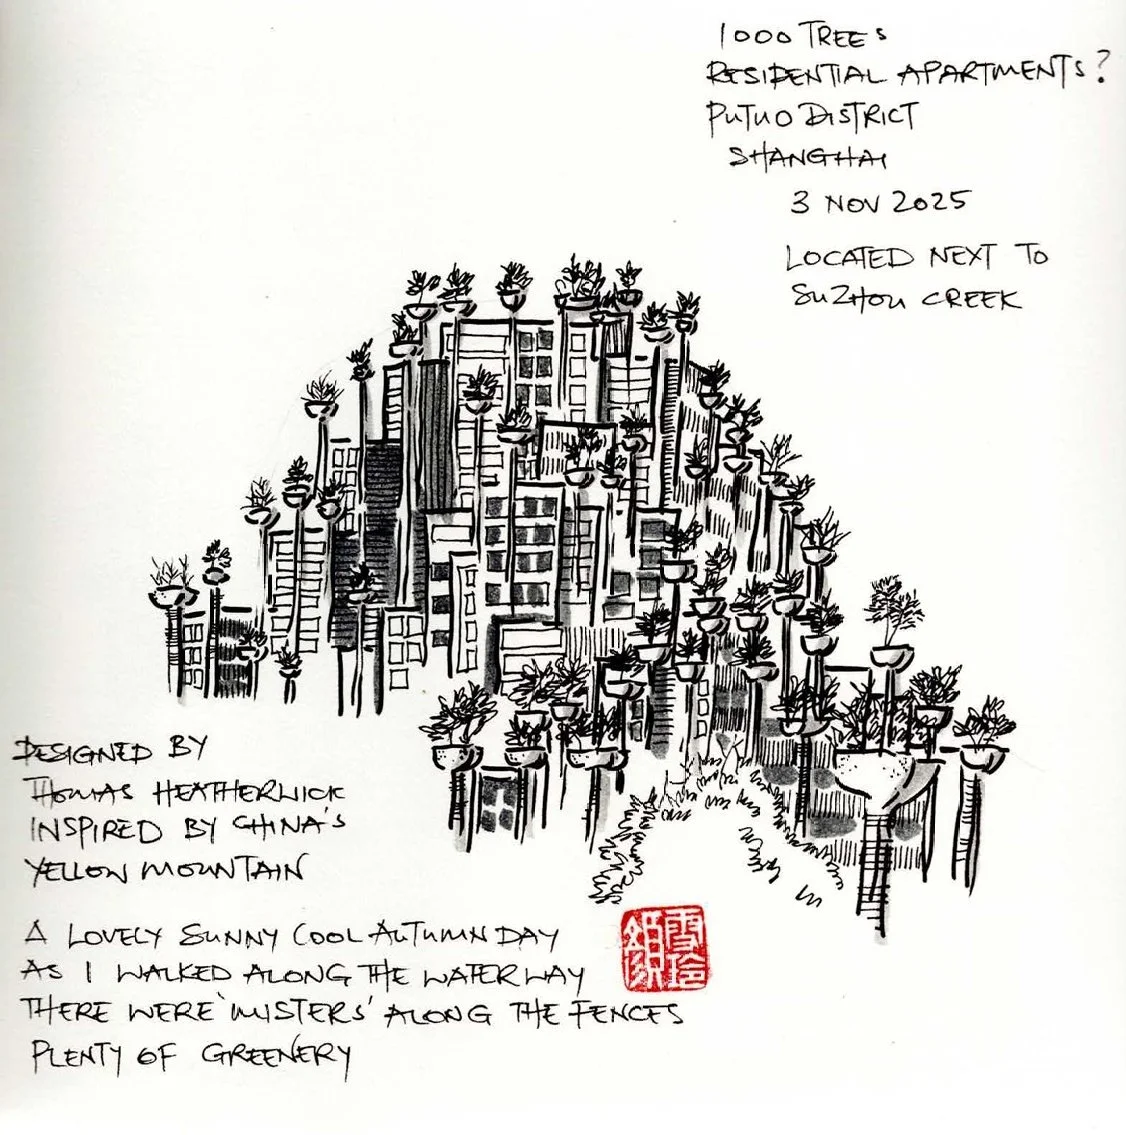 1000 TREES
RESIDENTIAL APARTMENTS?
PUTUO DISTRICT
SHANGHAI
3 NOV 2025
LOCATED NEXT TO
SUZHOU CREEK
DESIGNED BY
THOMAS HEATHERWICK
INSPIRED BY CHINA'S
YELLOW MOUNTAIN
A LOVELY SUNNY COOL AUTUMN DAY
AS I WALKED ALONG THE WATERWAY
THERE WERE 'MISTERS' ALONG THE FENCES
PLENTY OF GREENERY
雪玲